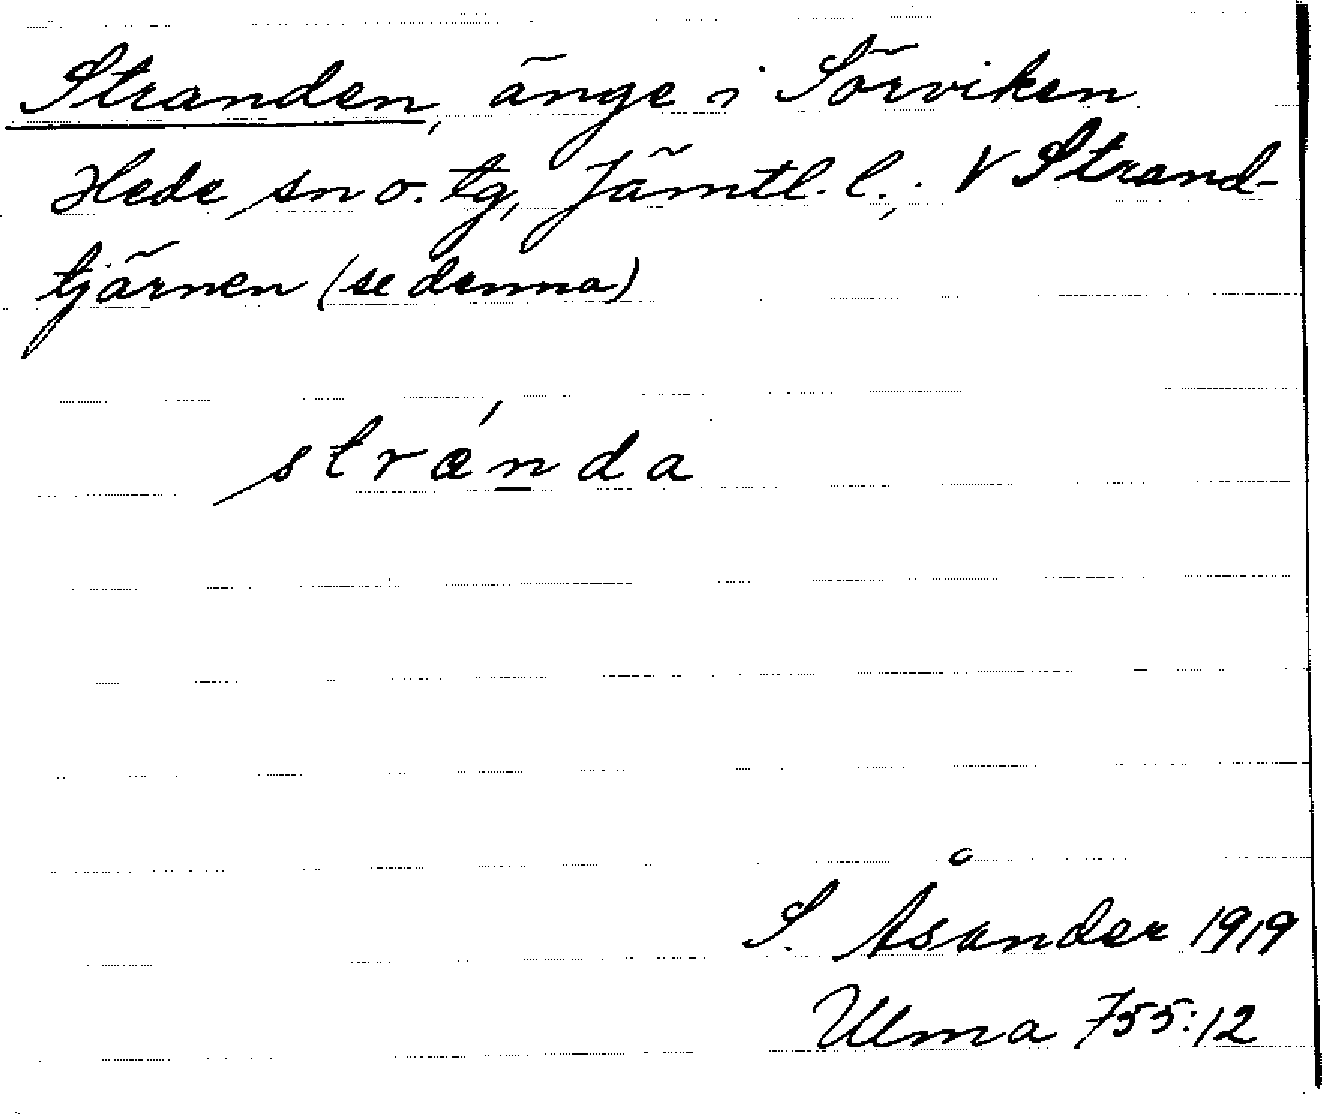 Stranden, änge i Sörviken
Hede sn o. tg, Jämtl. l.; V Strand-
tjärnen (se denna)
strǽnda
S. Åsander 1919
Ulma 755:12